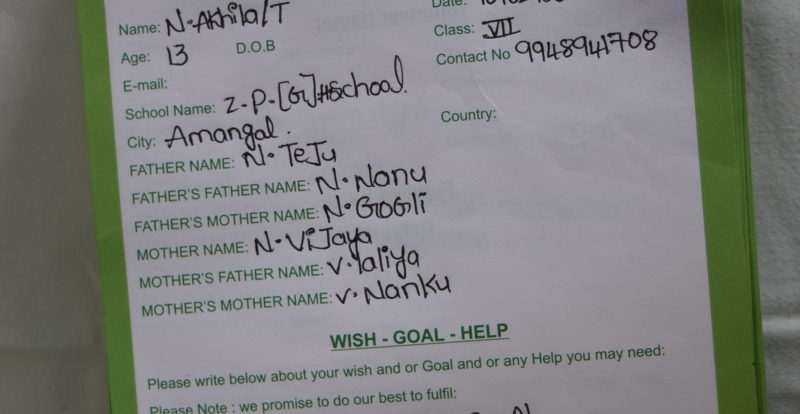 Name: N. Akhila/T
Age: 13 D.O.B Class: VII
E-mail: Contact No 9948941708
School Name: Z.P.[G]H School.
City: Amangal. Country:
FATHER NAME: N. TeJu
FATHER'S FATHER NAME: N. Nanu
FATHER'S MOTHER NAME: N. GOGli
MOTHER NAME: N. ViJaya
MOTHER'S FATHER NAME: V. Yaliya
MOTHER'S MOTHER NAME: V. Nanku
WISH - GOAL - HELP
Please write below about your wish and or Goal and or any Help you may need:
Please Note : we promise to do our best to fulfil: